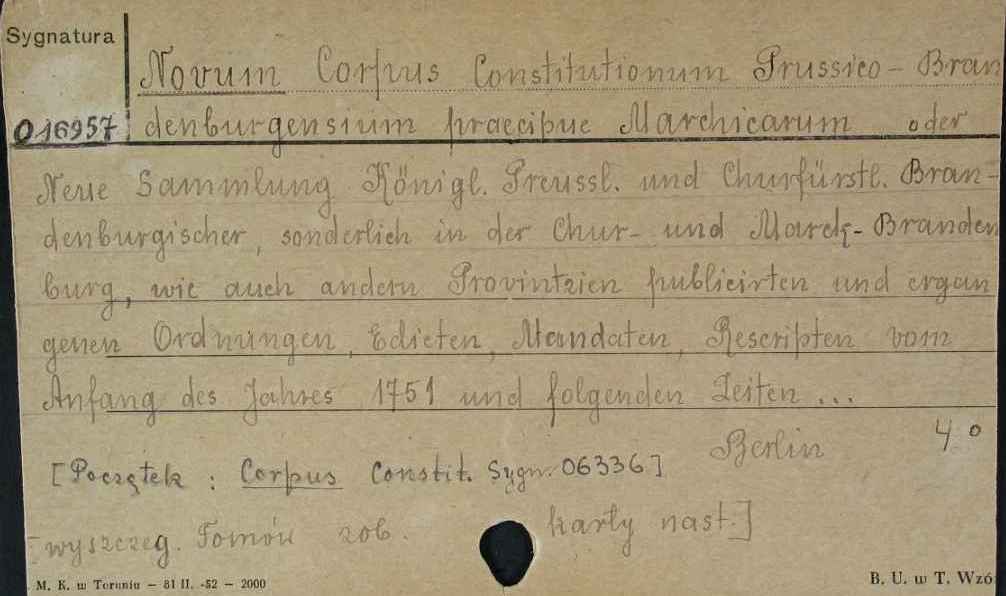 Sygnatura
Novum Corpus Constitutionum Prussico - Bran
016957 denburgensium praecipue Marchicarum oder
Neue Sammlung Königl. Preussl. und Churfürstl. Bran-
denburgischer, sonderlich in der Chur- und Marck-Branden
burg, wie auch andern Provintzien publicirten und ergan
genen Ordnungen, Edicten, Mandaten, Rescripten vom
Anfang des Jahres 1751 und folgenden Zeiten ...
Berlin 4°
[Początek : Corpus Constit. Sygn. 06336]
[wyszczeg. Tomów zob. karty nast.]
M. K. w Toruniu — 81 II. -52 — 2000 B. U. w T. Wzó